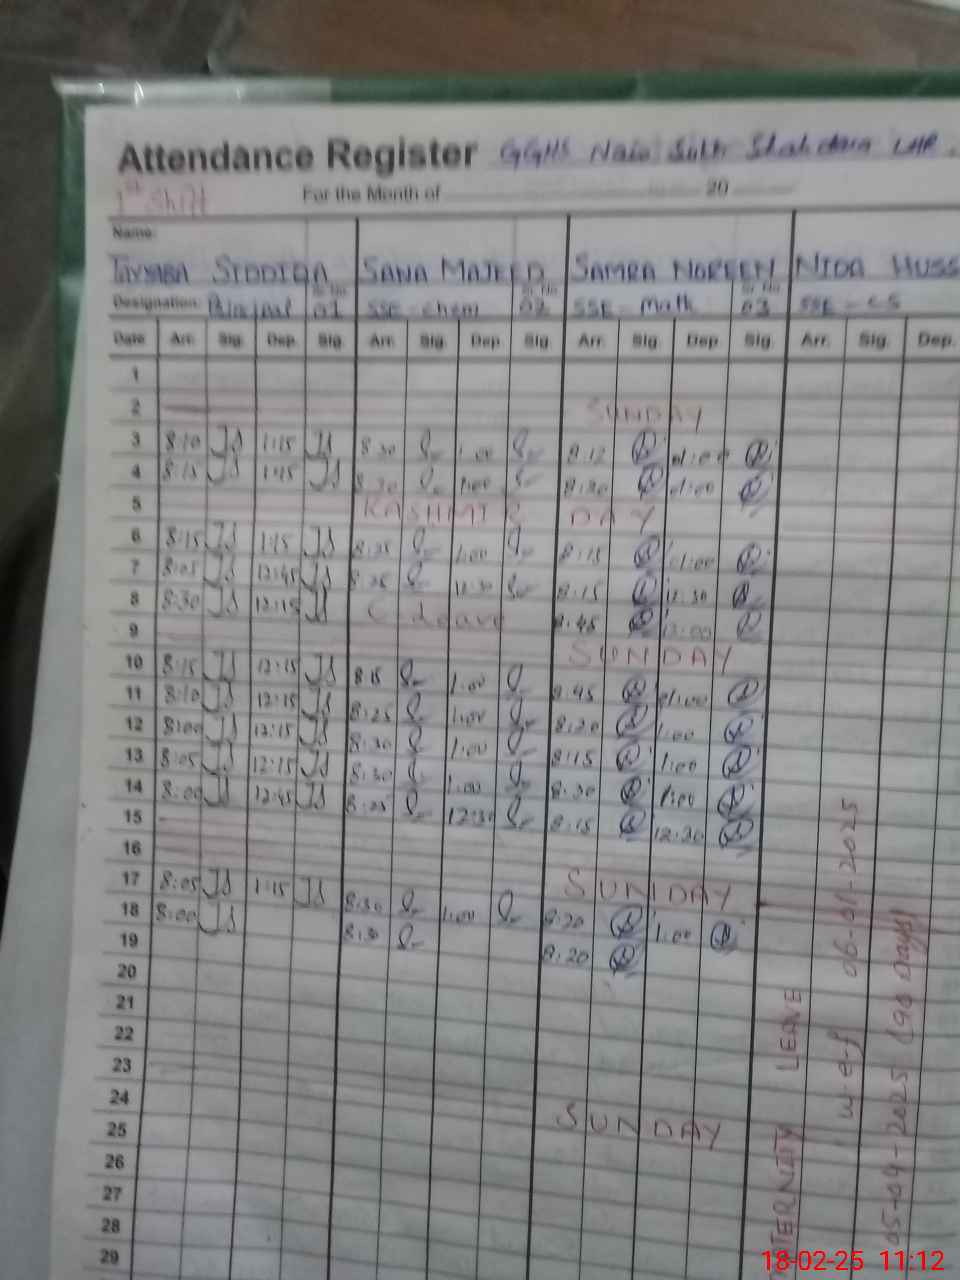 Attendance Register GGHS Shahdara LHR.
1st Shift
For the Month of 20
Name:
TAYYABA SIDDIQA SANA MAJEED SAMRA NOREEN NIDA HUSS
Designation: Principal Sr. No 01 SSE - chem Sr. No 02 SSE - Math Sr. No 03 SSE - CS
Date Arr. Sig. Dep. Sig. Arr. Sig. Dep. Sig. Arr. Sig. Dep. Sig. Arr. Sig. Dep.
1
2 SUNDAY
3 8:10 1:15 8:30 1:00 8:12 01:00
4 8:15 1:45 8:30 1:00 8:20 01:00
5 KASHMIR DAY
6 8:15 1:15 8:25 1:00 8:15 01:00
7 8:05 12:45 8:25 12:30 8:15 12:30
8 8:30 12:15 C Leave 8:45 12:00
9 SUNDAY
10 8:15 12:15 8:15 1:00 8:45 01:00
11 8:10 12:15 8:25 1:00 8:20 1:00
12 8:00 12:15 8:30 1:00 8:15 1:00
13 8:05 12:15 8:30 1:00 8:30 1:00
14 8:00 12:45 8:25 12:30 8:15 12:30
15
16 SUNDAY
17 8:05 1:15 8:30 1:00 8:20 1:00
18 8:00 8:30 8:20
19
20
21
22
23 SUNDAY
24
25
26
27
28
29
TERNITY LEAVE
w.e.f 06-01-2025
05-04-2025 (90 Days)
18-02-25 11:12